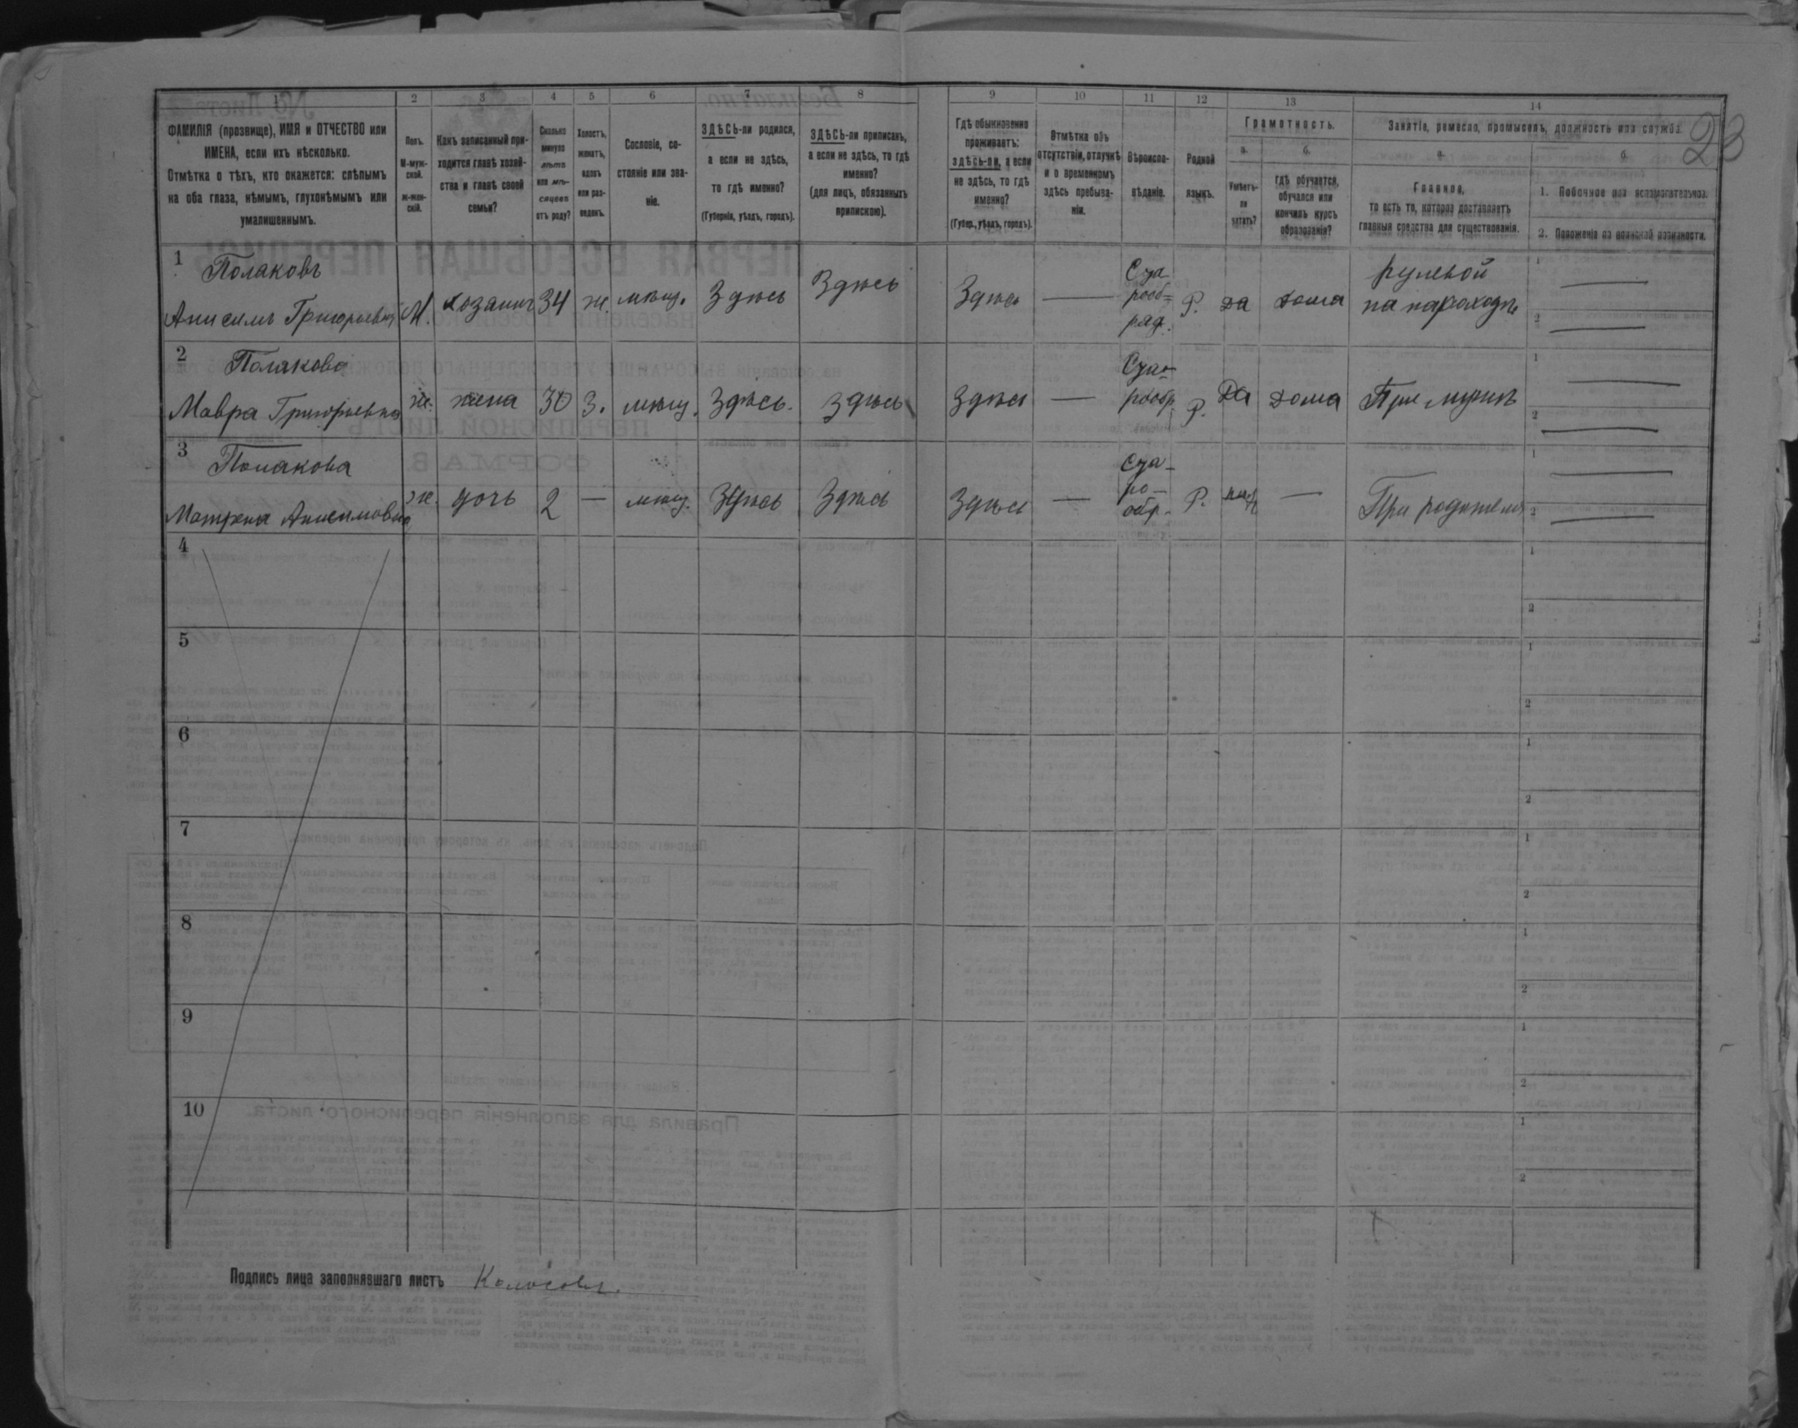 23
1 2 3 4 5 6 7 8 9 10 11 12 13 14
ФАМИЛІЯ (прозвище), ИМЯ и ОТЧЕСТВО или
ИМЕНА, если ихъ нѣсколько.
Отмѣтка о тѣхъ, кто окажется: слѣпымъ
на оба глаза, нѣмымъ, глухонѣмымъ или
умалишеннымъ.
Полъ.
М-муж-
ской.
ж-жен-
скій.
Какъ записанный при-
ходится главѣ хозяй-
ства и главѣ своей
семьи?
Сколько
минуло
лѣтъ
или мѣ-
сяцевъ
отъ роду?
Холостъ,
женатъ,
вдовъ
или раз-
веденъ.
Сословіе, со-
стояніе или зва-
ніе.
ЗДѢСЬ-ли родился,
а если не здѣсь,
то гдѣ именно?
(Губернія, уѣздъ, городъ).
ЗДѢСЬ-ли приписанъ,
а если не здѣсь, то гдѣ
именно?
(для лицъ, обязанныхъ
припискою).
Гдѣ обыкновенно
проживаетъ:
здѣсь-ли, а если
не здѣсь, то гдѣ
именно?
(Губер., уѣздъ, городъ).
Отмѣтка объ
отсутствіи, отлучкѣ
и о временномъ
здѣсь пребыва-
ніи.
Вѣроиспо-
вѣданіе.
Родной
языкъ.
Грамотность.
а.
Умѣетъ-
ли
читать?
б.
гдѣ обучается,
обучался или
кончилъ курсъ
образованія?
Занятіе, ремесло, промыселъ, должность или служба.
а.
Главное,
то есть то, которое доставляетъ
главныя средства для существованія.
б.
1. Побочное или вспомогательное.
2. Положеніе по воинской повинности.
1 Полаковъ
Анисимъ Григорьевич М. хозаинъ 34 ж. мѣщ. Здѣсь Здѣсь Здѣсь — Ста
рооб=
ряд. Р. да дома рулевой
на пароходѣ 1 — 2 —
2 Полакова
Мавра Григорьевна ж. жена 30 з. мѣщ. Здѣсь. Здѣсь Здѣсь — Ста-
рообр. Р. Да дома При мужѣ 1 — 2 —
3 Полакова
Матрена Анисимовна ж. дочь 2 — мѣщ. Здѣсь Здѣсь Здѣсь — Ста-
ро-
обр. Р. — При родителя 1 — 2 —
4 1 2
5 1 2
6 1 2
7 1 2
8 1 2
9 1 2
10 1 2
Подпись лица заполнявшаго листъ Колосовъ.